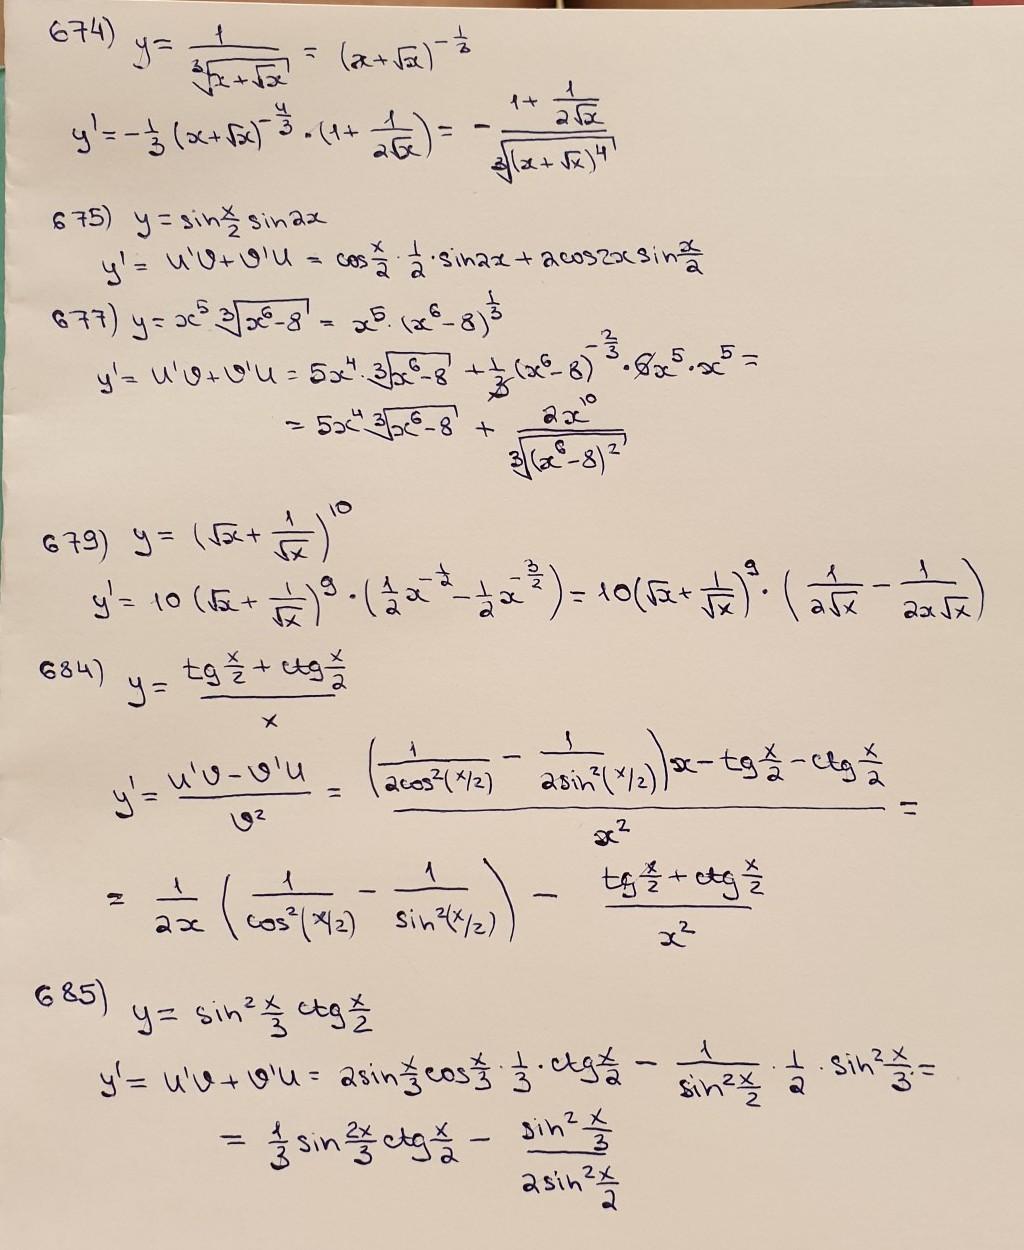 674) y = 1/∛(x+√x) = (x+√x)^(-1/3)
y' = -1/3 (x+√x)^(-4/3) · (1 + 1/(2√x)) = - (1 + 1/(2√x))/∛((x+√x)^4)
675) y = sin x/2 sin2x
y' = u'v + v'u = cos x/2 · 1/2 · sin2x + 2cos2x sin x/2
677) y = x^5 ∛(x^6-8) = x^5 · (x^6-8)^(1/3)
y' = u'v + v'u = 5x^4 · ∛(x^6-8) + 1/3 (x^6-8)^(-2/3) · 6x^5 · x^5 =
= 5x^4 ∛(x^6-8) + 2x^10/∛((x^6-8)^2)
679) y = (√x + 1/√x)^10
y' = 10 (√x + 1/√x)^9 · (1/2 x^(-1/2) - 1/2 x^(-3/2)) = 10(√x + 1/√x)^9 · (1/(2√x) - 1/(2x√x))
684) y = (tg x/2 + ctg x/2)/x
y' = (u'v - v'u)/v² = ((1/(2cos²(x/2)) - 1/(2sin²(x/2)))x - tg x/2 - ctg x/2)/x² =
= 1/(2x) (1/cos²(x/2) - 1/sin²(x/2)) - (tg x/2 + ctg x/2)/x²
685) y = sin² x/3 ctg x/2
y' = u'v + v'u = 2sin x/3 cos x/3 · 1/3 · ctg x/2 - 1/(sin² x/2) · 1/2 · sin² x/3 =
= 1/3 sin 2x/3 ctg x/2 - (sin² x/3)/(2sin² x/2)